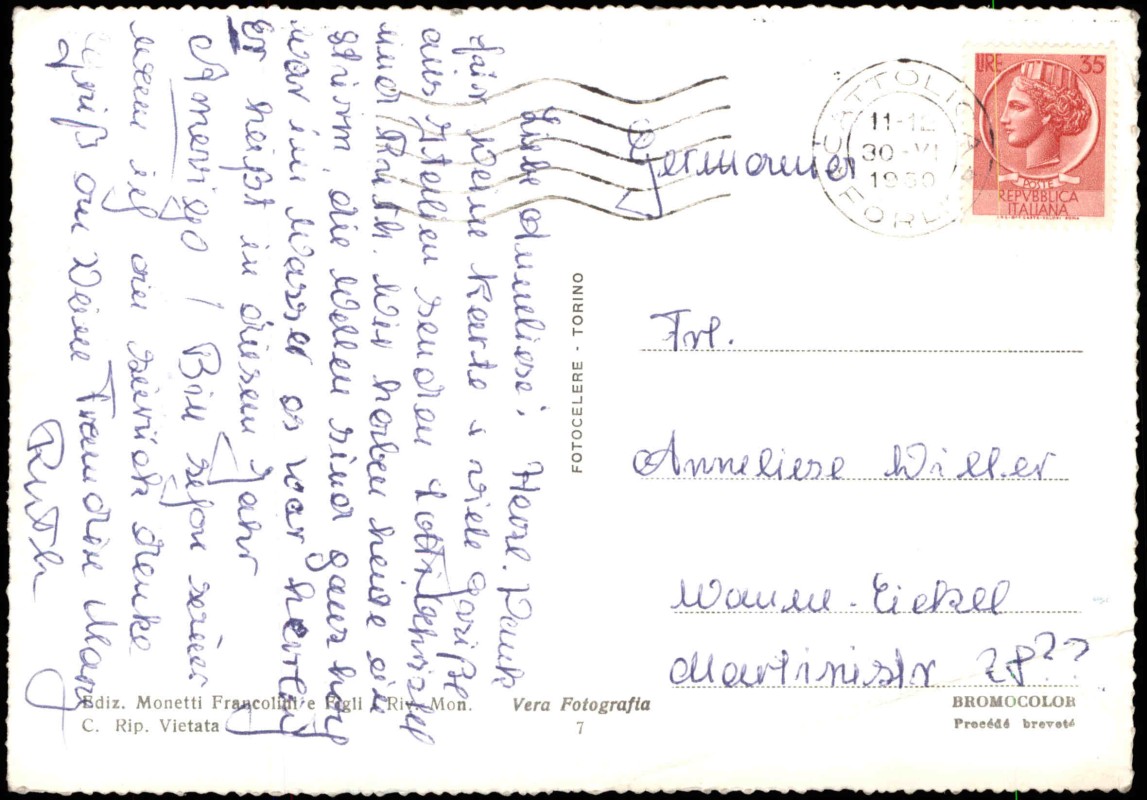 Liebe Anneliese! Herzl. Dank
für Deine Karte u. viele Grüße
aus Italien senden Lotti
und Ruth. Wir haben heute ein
Sturm, die Wellen sind ganz hoch
war im Wasser es war herrlich
Er heißt in diesem Jahr
Amerigo! Bin schon
wenn ich an zurück denke
Gruß an Deine Freundin
Ruth
Germania
CATTOLICA
11-12
30-VI
19
FORLI
LIRE 35
POSTE
REPVBBLICA
ITALIANA
Frl.
Anneliese Willer
Wanne-Eickel
Martinistr 28??
FOTOCELERE - TORINO
Ediz. Monetti Francolini e Figli - Riv. Mon.
C. Rip. Vietata
Vera Fotografia
7
BROMOCOLOR
Procédé breveté